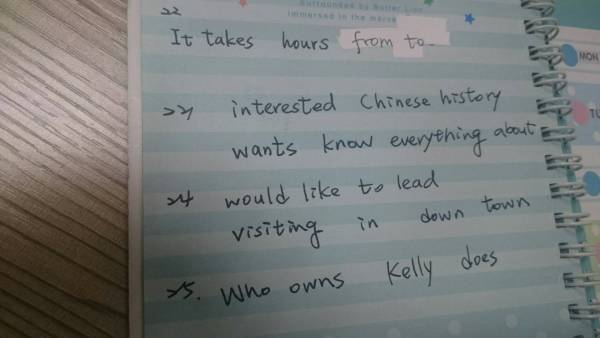 Surrounded by Butter Lion
Immersed in the
22
It takes hours from to
23 interested Chinese history
wants know everything about
24 would like to lead
visiting in down town
25. Who owns Kelly does
MON